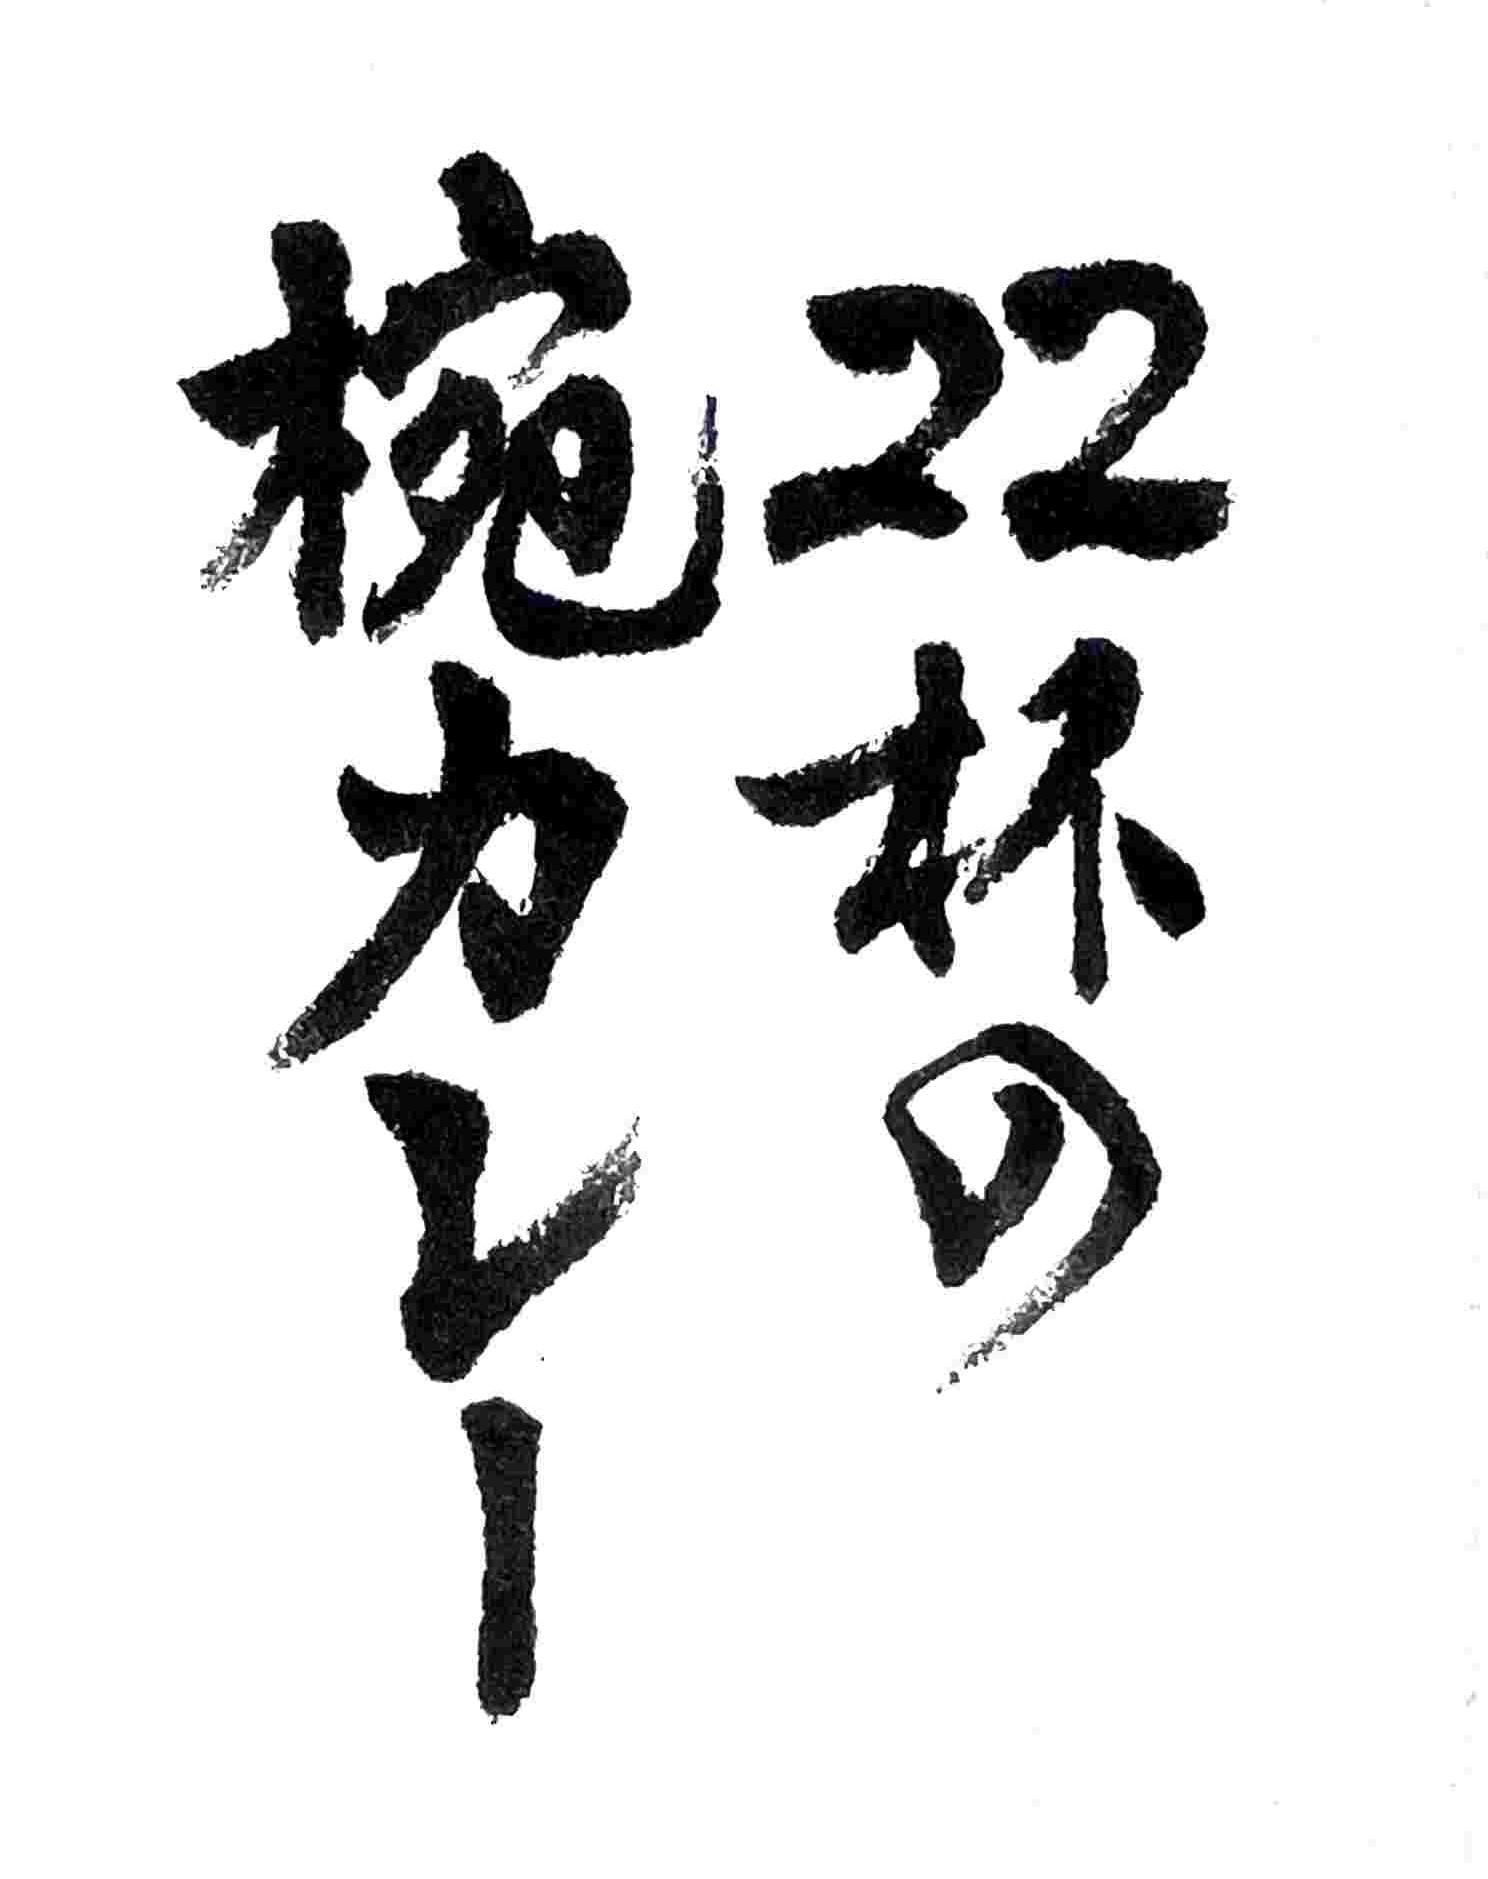 22杯の
椀カレー